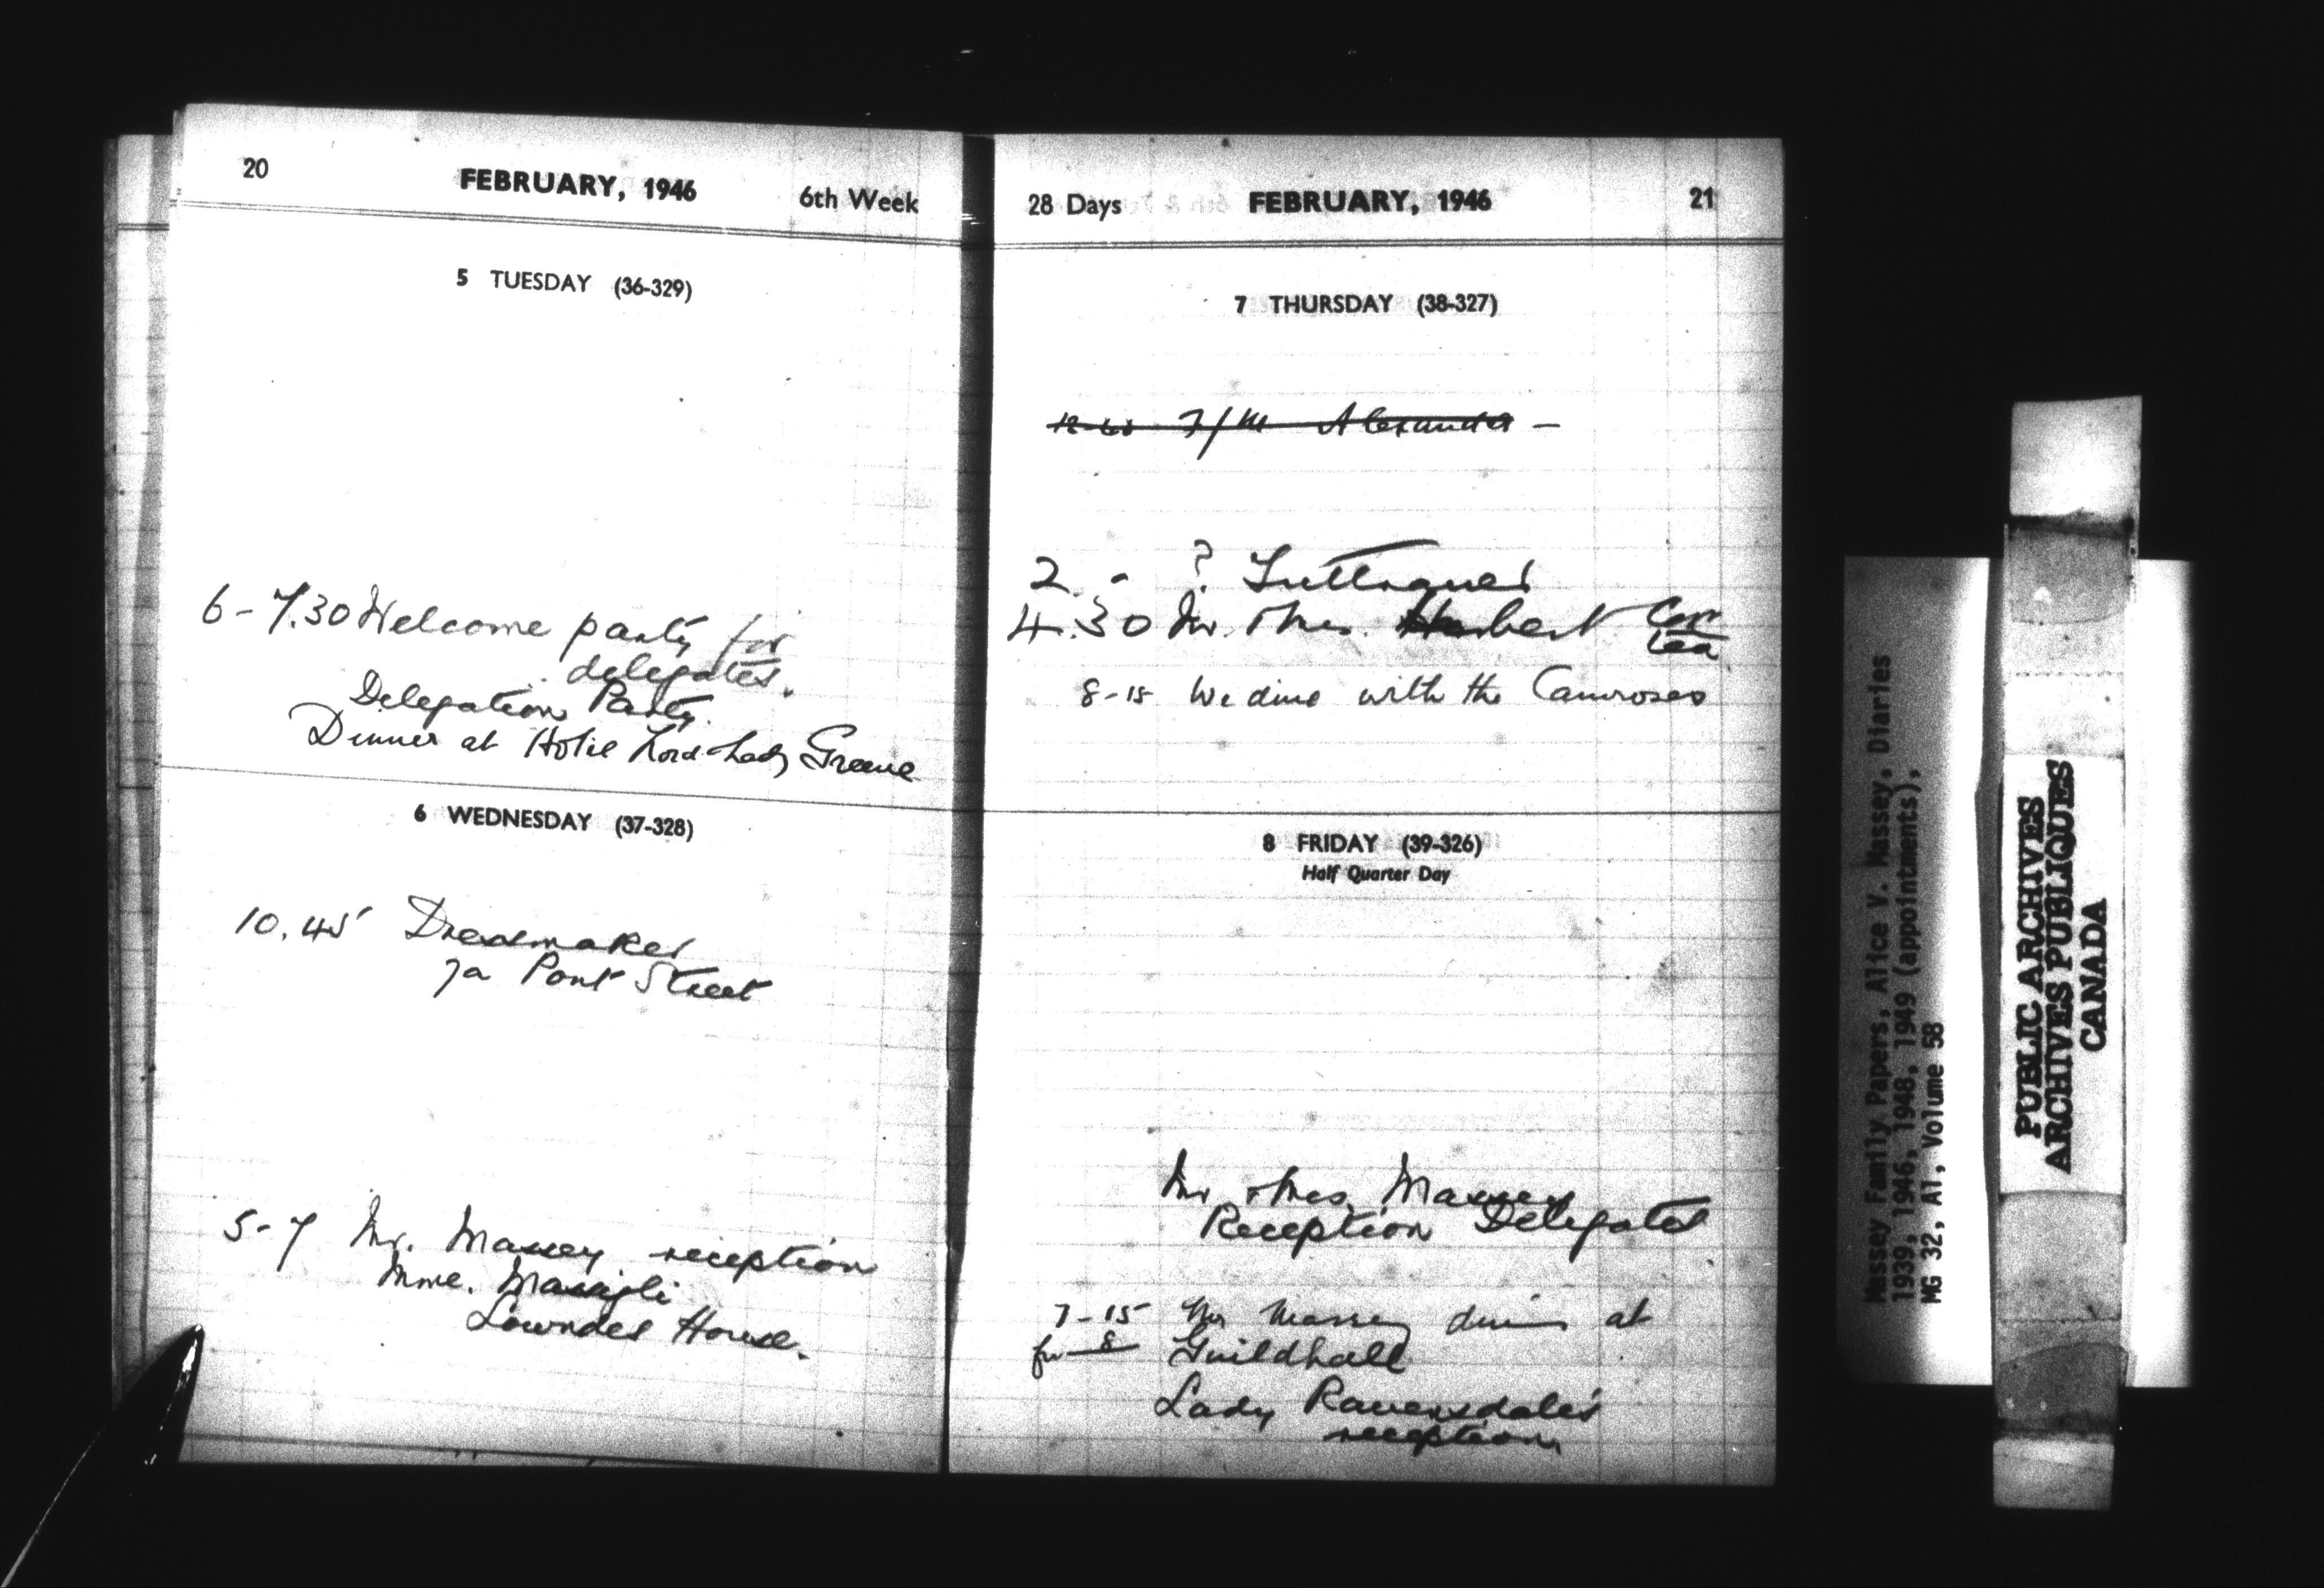 20 FEBRUARY, 1946 6th Week
5 TUESDAY (36-329)
6 - 7.30 Welcome party for
delegates.
Delegation Party.
Dinner at Hotel Lord & Lady Greene
6 WEDNESDAY (37-328)
10.45 Dressmaker
7a Pont Street
5-7 Mr. Massey reception
Mme. Massigli
Lowndes House.
28 Days FEBRUARY, 1946 21
7 THURSDAY (38-327)
F/M Alexander -
2. - ?
4.30 Mr. & Mrs. Herbert
tea
8-15 We dine with the Camroses
8 FRIDAY (39-326)
Half Quarter Day
Mr & Mrs. Massey
Reception Delegates
7-15 Mr Massey dines at
for 8 Guildhall
Lady Ravensdale's
reception
Massey Family Papers, Alice V. Massey, Diaries
1939, 1946, 1948, 1949 (appointments),
MG 32, A1, Volume 58
PUBLIC ARCHIVES
ARCHIVES PUBLIQUES
CANADA